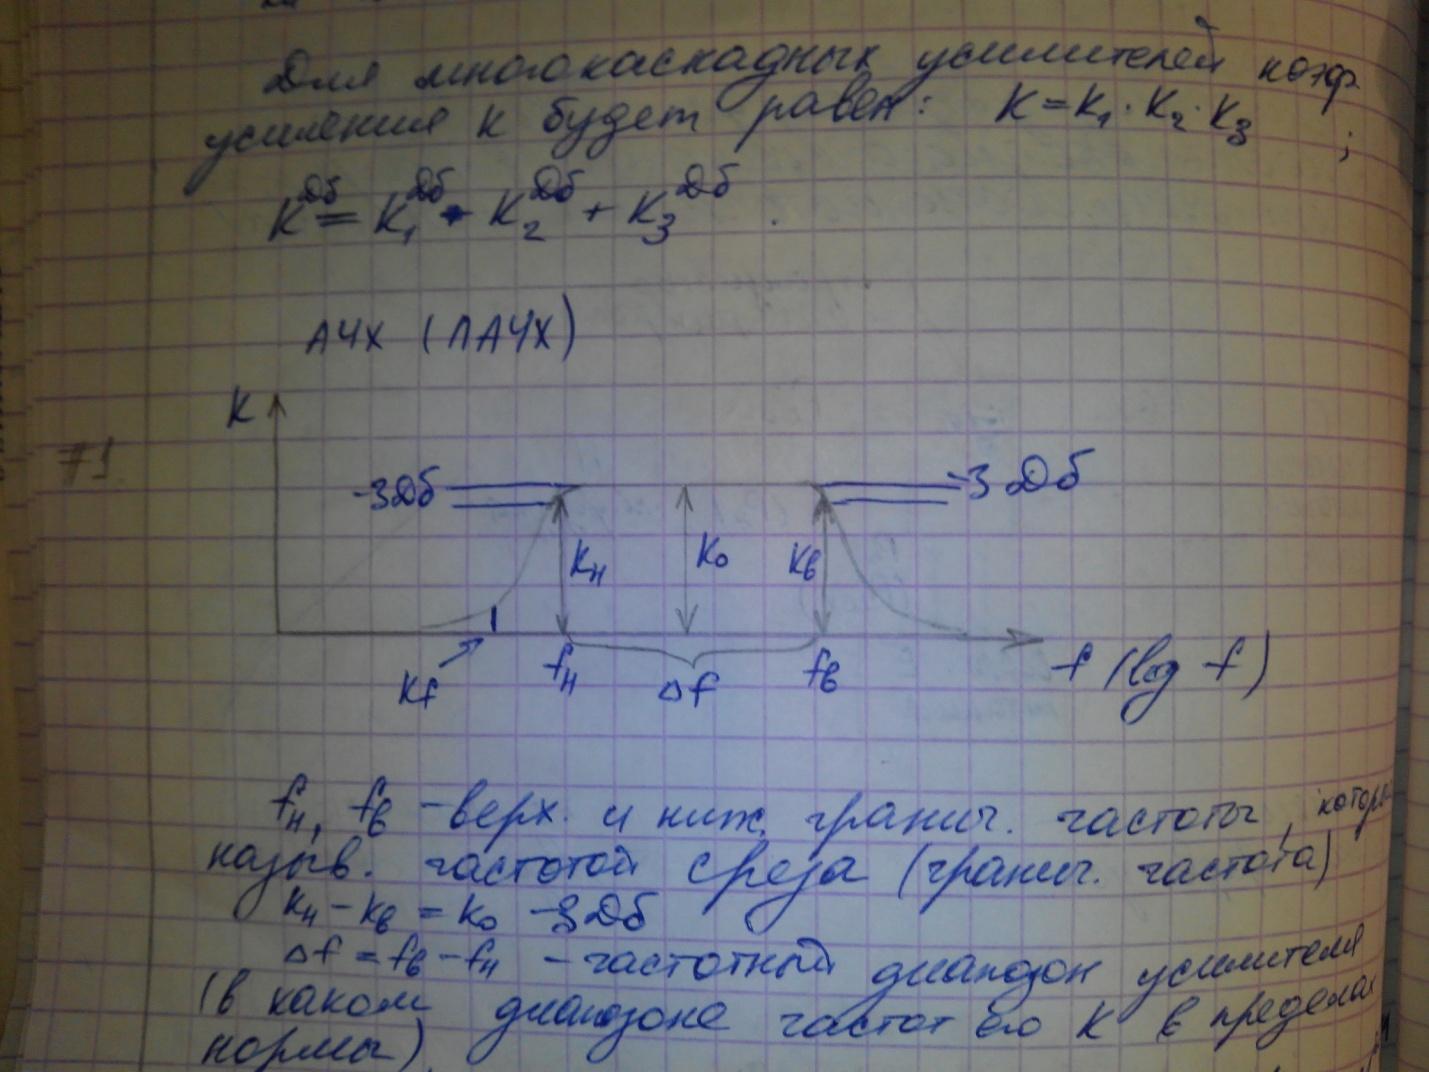 Для многокаскадных усилителей коэф.
усиления К будет равен: K=K₁·K₂·K₃ ;
K^Дб = K₁^Дб + K₂^Дб + K₃^Дб .
АЧХ (ЛАЧХ)
K
-3Дб -3Дб
Kн K₀ Kв
Kf fн Δf fв f (log f)
fн, fв - верх. и ниж. гранич. частоты, котор
назыв. частотой среза (гранич. частота)
Kн - Kв = K₀ -3Дб
Δf = fв - fн - частотный диапазон усилителя
(в каком диапазоне частот его К в пределах
нормы).